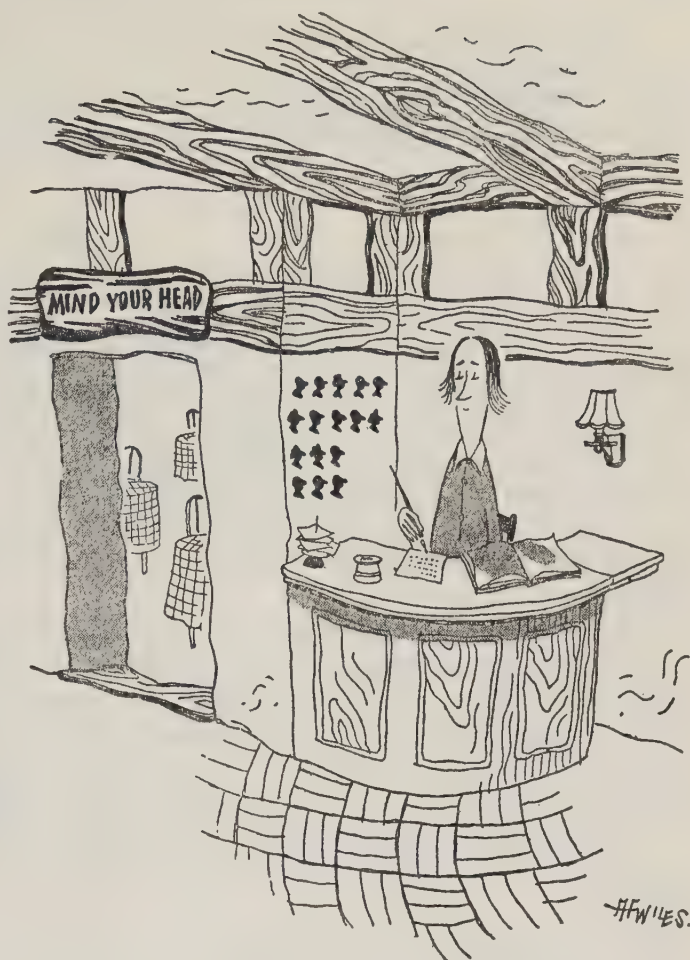 MIND YOUR HEAD
AFWILES.